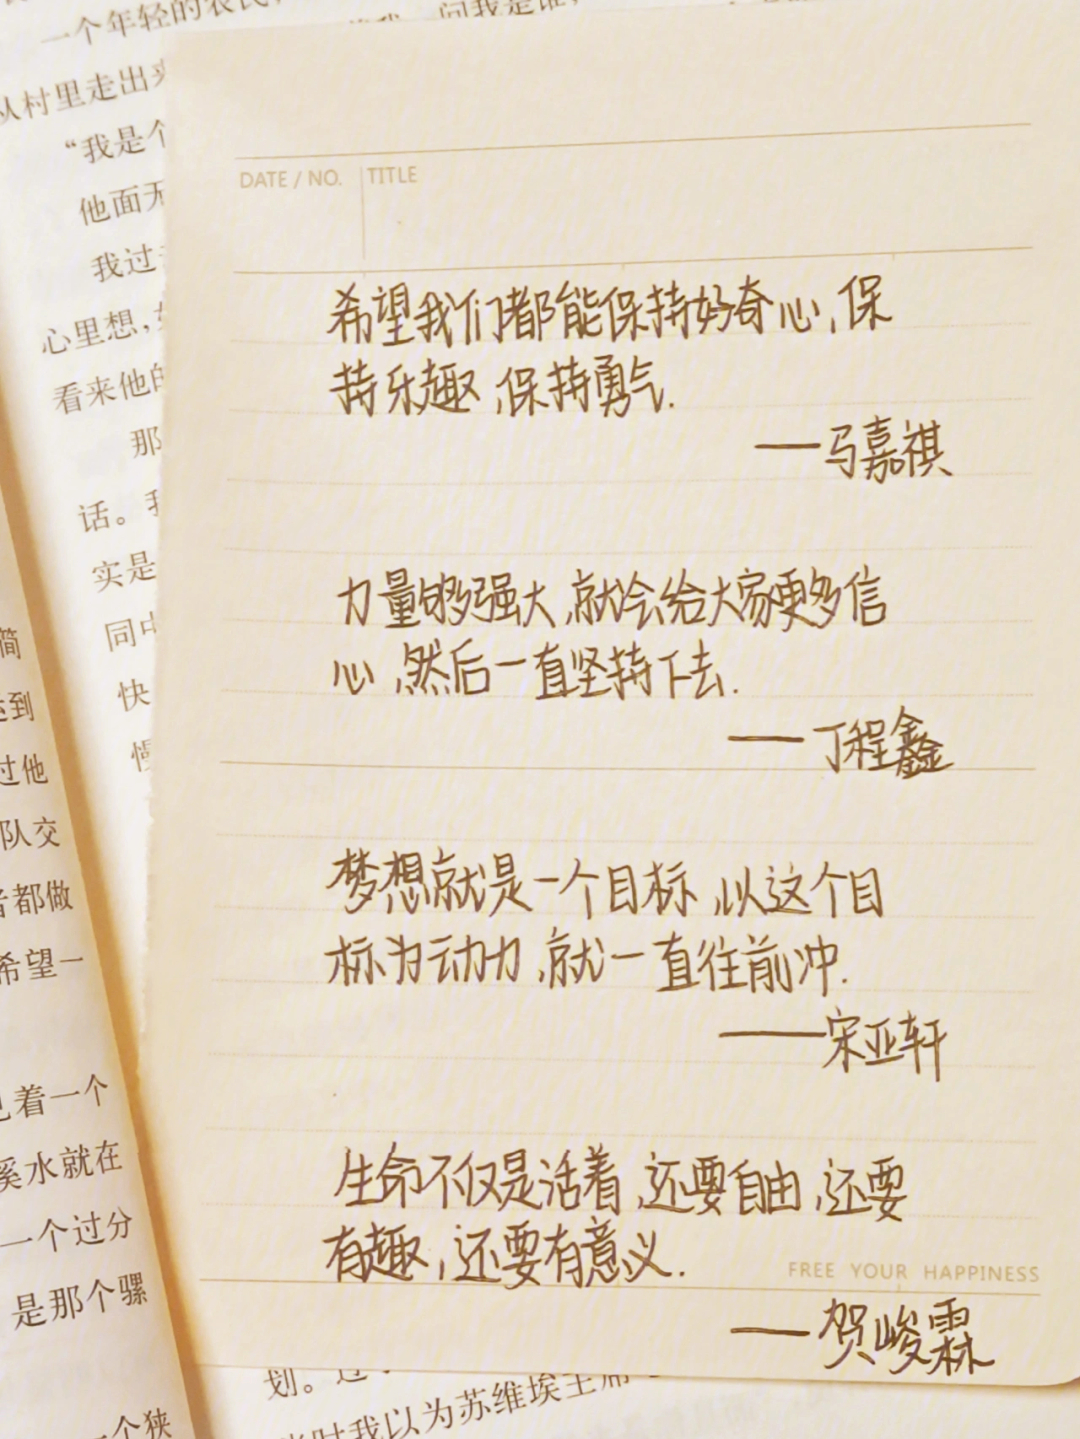 一个年轻的农民，
问我是谁，
从村里走出来
“我是个
他面无
我过去
心里想，
看来他的
那
话。我
实是
同中
快
慢
DATE / NO. TITLE
希望我们都能保持好奇心,保
持乐趣,保持勇气.
——马嘉祺
力量够强大,就会给大家更多信
心,然后一直坚持下去.
——丁程鑫
梦想就是一个目标,以这个目
标为动力,就一直往前冲.
——宋亚轩
生命不仅是活着,还要自由,还要
有趣,还要有意义.
FREE YOUR HAPPINESS
——贺峻霖
简
到
过他
队交
都做
希望一
着一个
溪水就在
一个过分
是那个骡
一个狭
划。过
当时我以为苏维埃主席